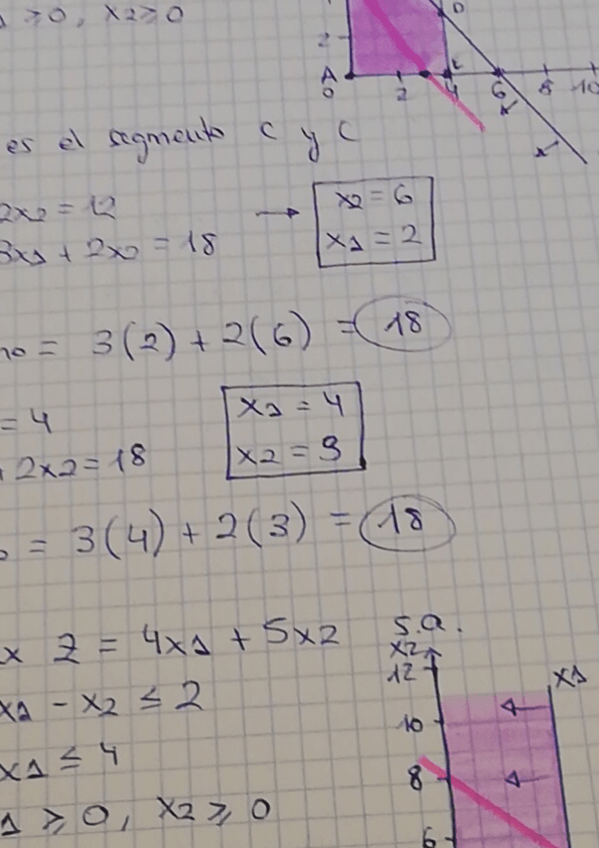 ≥0, x2≥0
2
A
0 2 4 6 8 10
es el segmento C y C
2x2 = 12
3x1 + 2x2 = 18 → x2 = 6
x1 = 2
= 3(2) + 2(6) = 18
= 4
2x2 = 18
x1 = 4
x2 = 3
= 3(4) + 2(3) = 18
x Z = 4x1 + 5x2
s.a.
x1 - x2 ≤ 2
x1 ≤ 4
1 ≥ 0, x2 ≥ 0
x2
12
x1
10
8
6